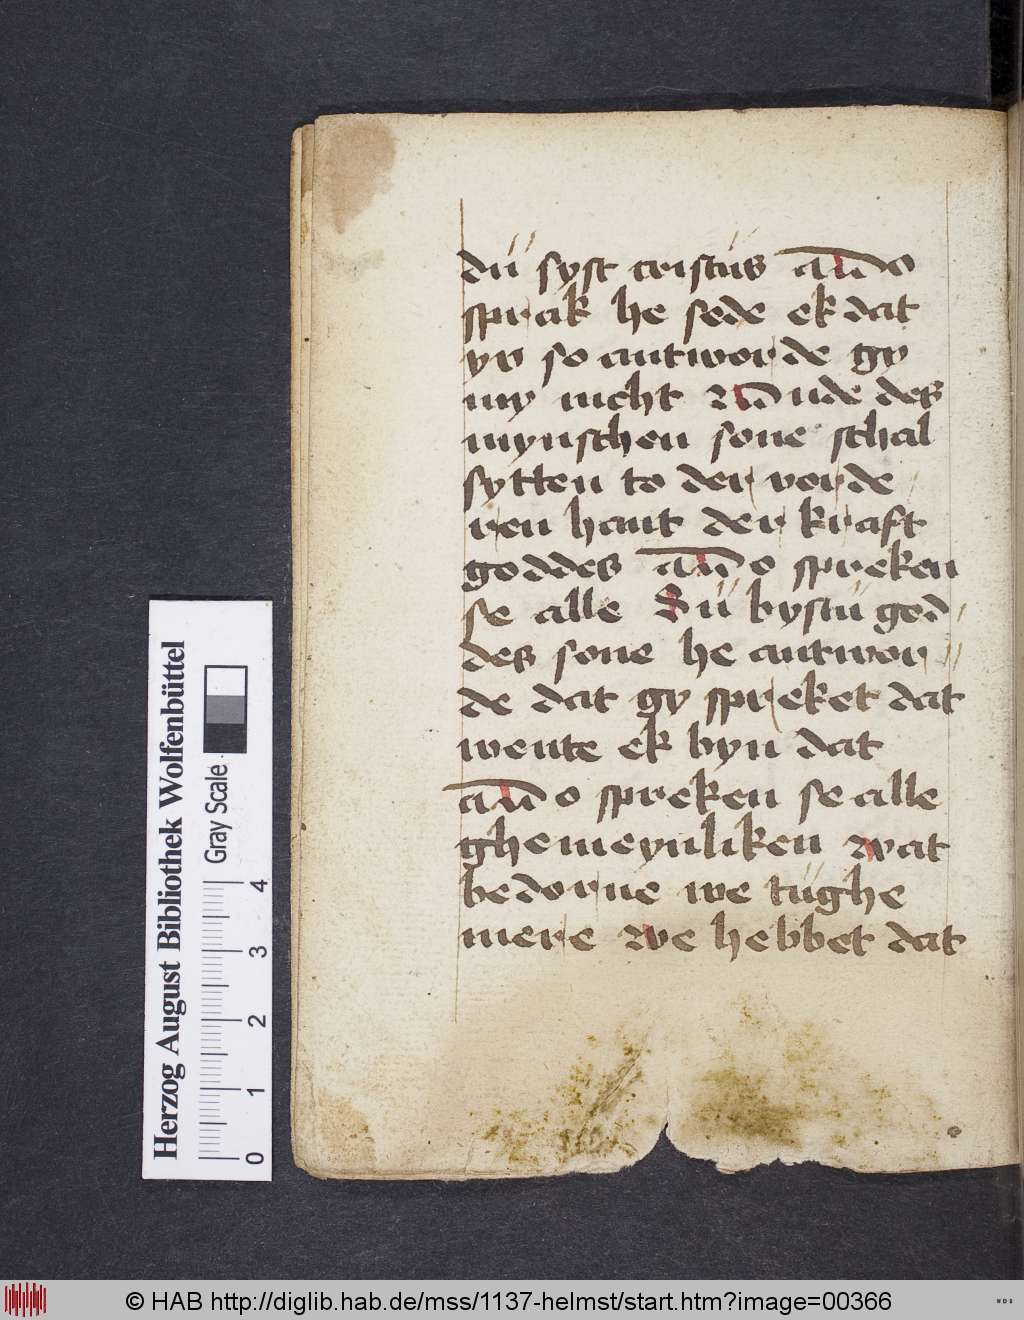 dü syst cristüs also
sprak he sede ek dat
yv so antworde gy
my nicht wende des
mynschen sone schal
sytten to der vorde
ren hant der kraft
goddes also spreken
se alle Dü bystü god
des sone he antwor
de dat gy spreket dat
wente ek byn dat
also spreken se alle
ghemeynliken wat
bedorue we tüghe
mere we hebbet dat
Herzog August Bibliothek Wolfenbüttel
Gray Scale
0 1 2 3 4
© HAB http://diglib.hab.de/mss/1137-helmst/start.htm?image=00366